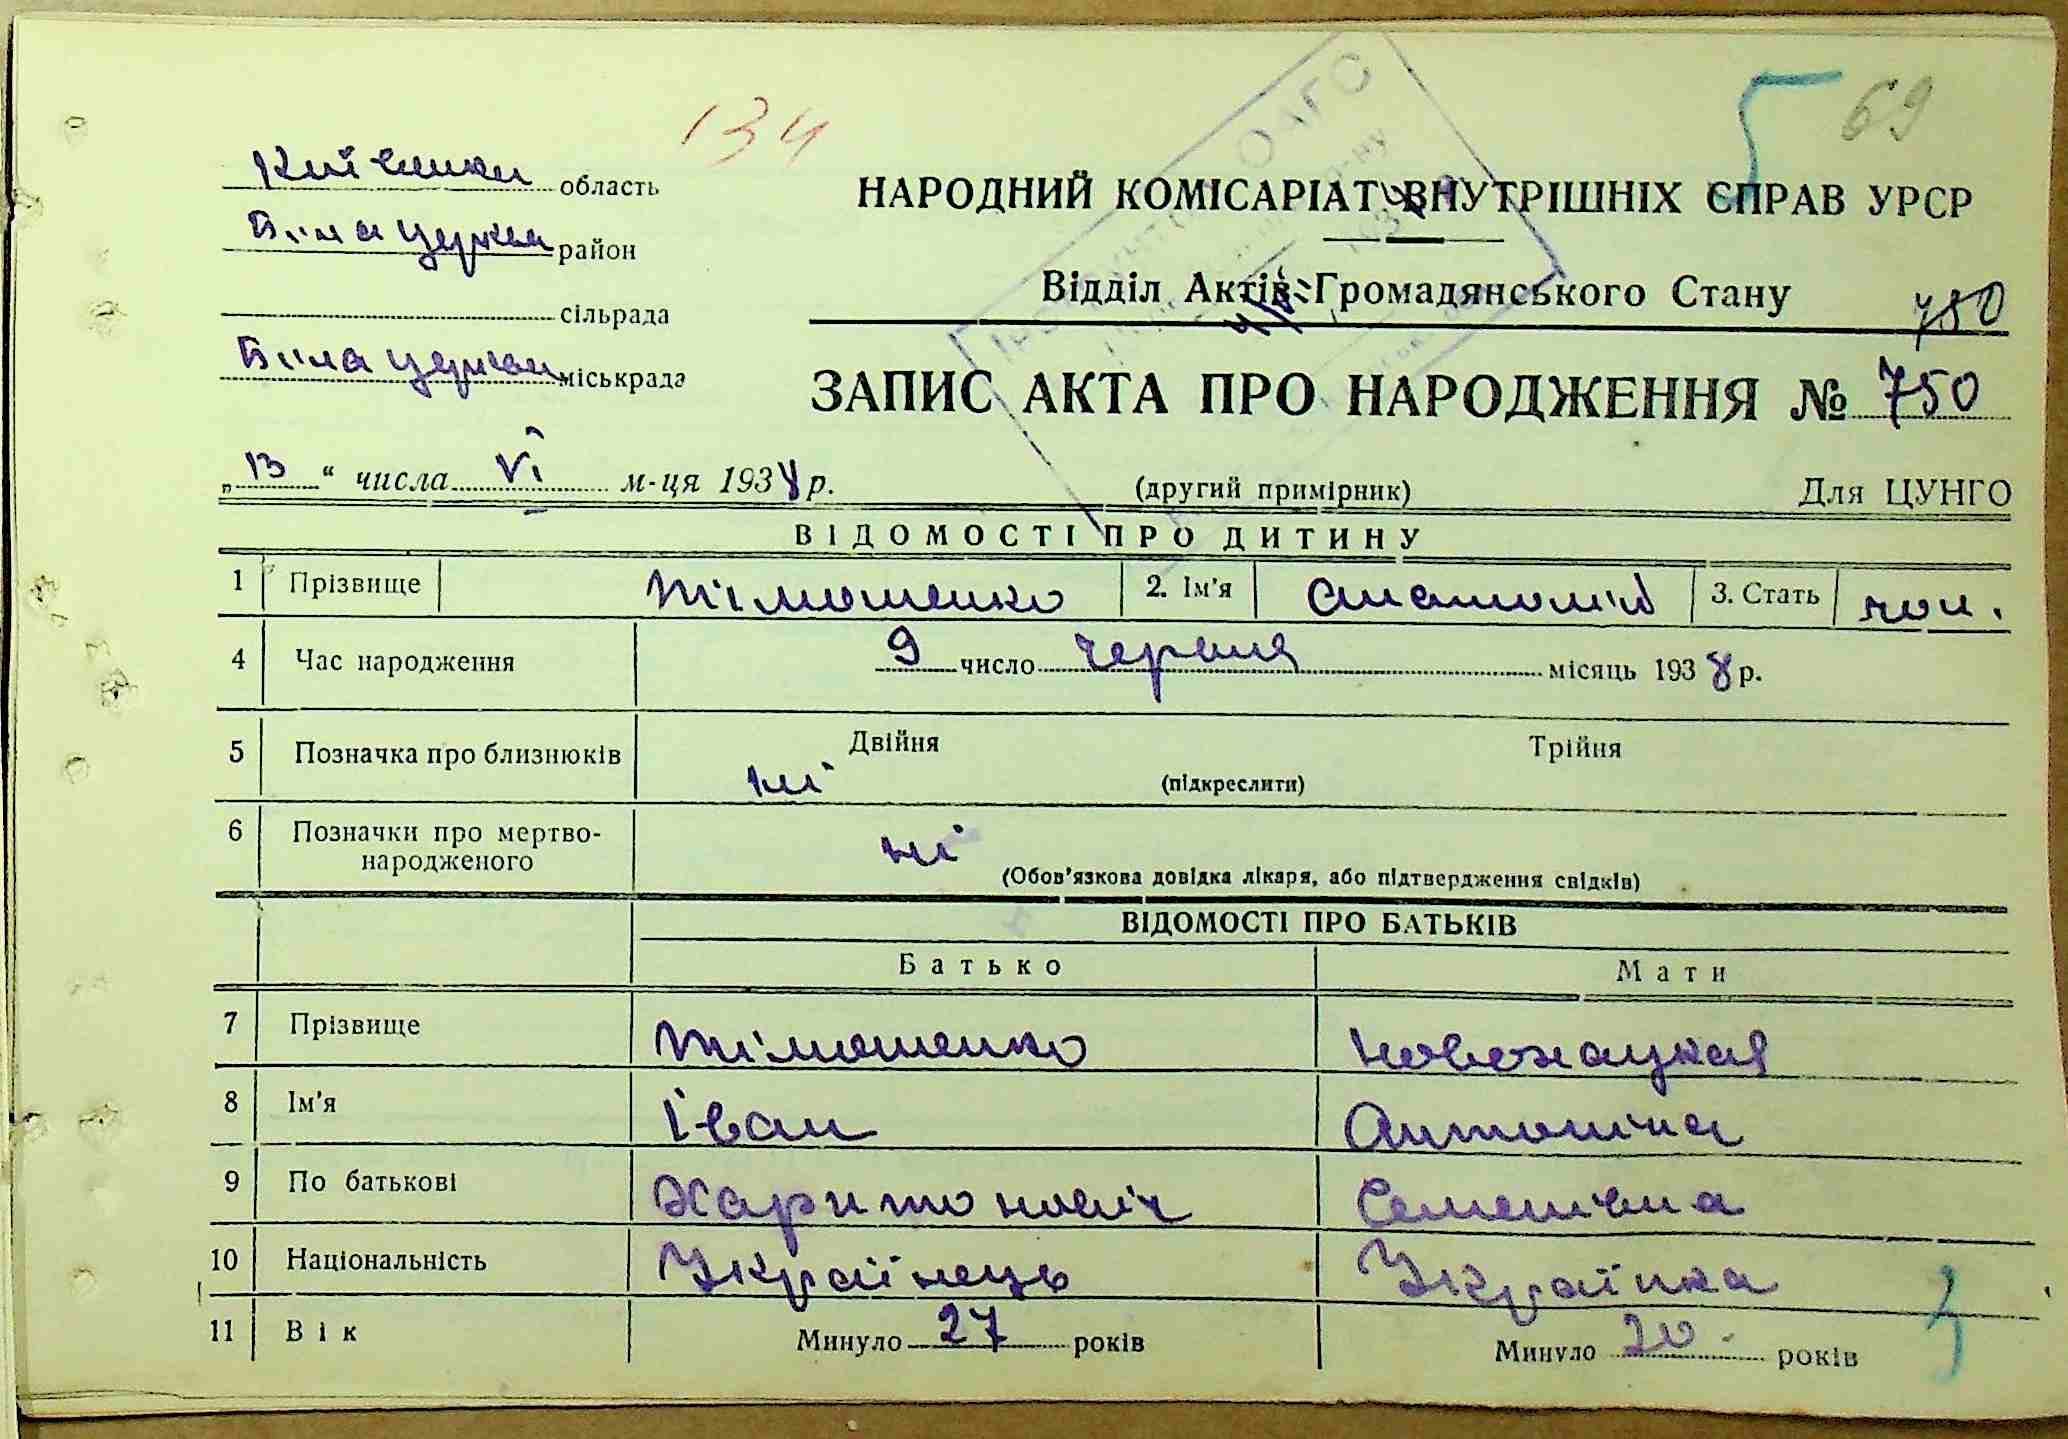 134
5 69
Київська область
Біла церква район
сільрада
Біла церква міськрада
НАРОДНИЙ КОМІСАРІАТ ВНУТРІШНІХ СПРАВ УРСР
Відділ Актів Громадянського Стану
750
ЗАПИС АКТА ПРО НАРОДЖЕННЯ № 750
„13“ числа VI м-ця 1938 р.
(другий примірник)
Для ЦУНГО
ВІДОМОСТІ ПРО ДИТИНУ
1 Прізвище Тімошенко 2. Ім'я Анатолій 3. Стать чол.
4 Час народження 9 число червня місяць 1938 р.
5 Позначка про близнюків Двійня Трійня
ні (підкреслити)
6 Позначки про мертво-
народженого ні
(Обов'язкова довідка лікаря, або підтвердження свідків)
ВІДОМОСТІ ПРО БАТЬКІВ
Батько Мати
7 Прізвище Тімошенко
8 Ім'я Іван Антоніна
9 По батькові Харитоновіч Семенівна
10 Національність Українець Українка
11 Вік Минуло 27 років Минуло 20 років